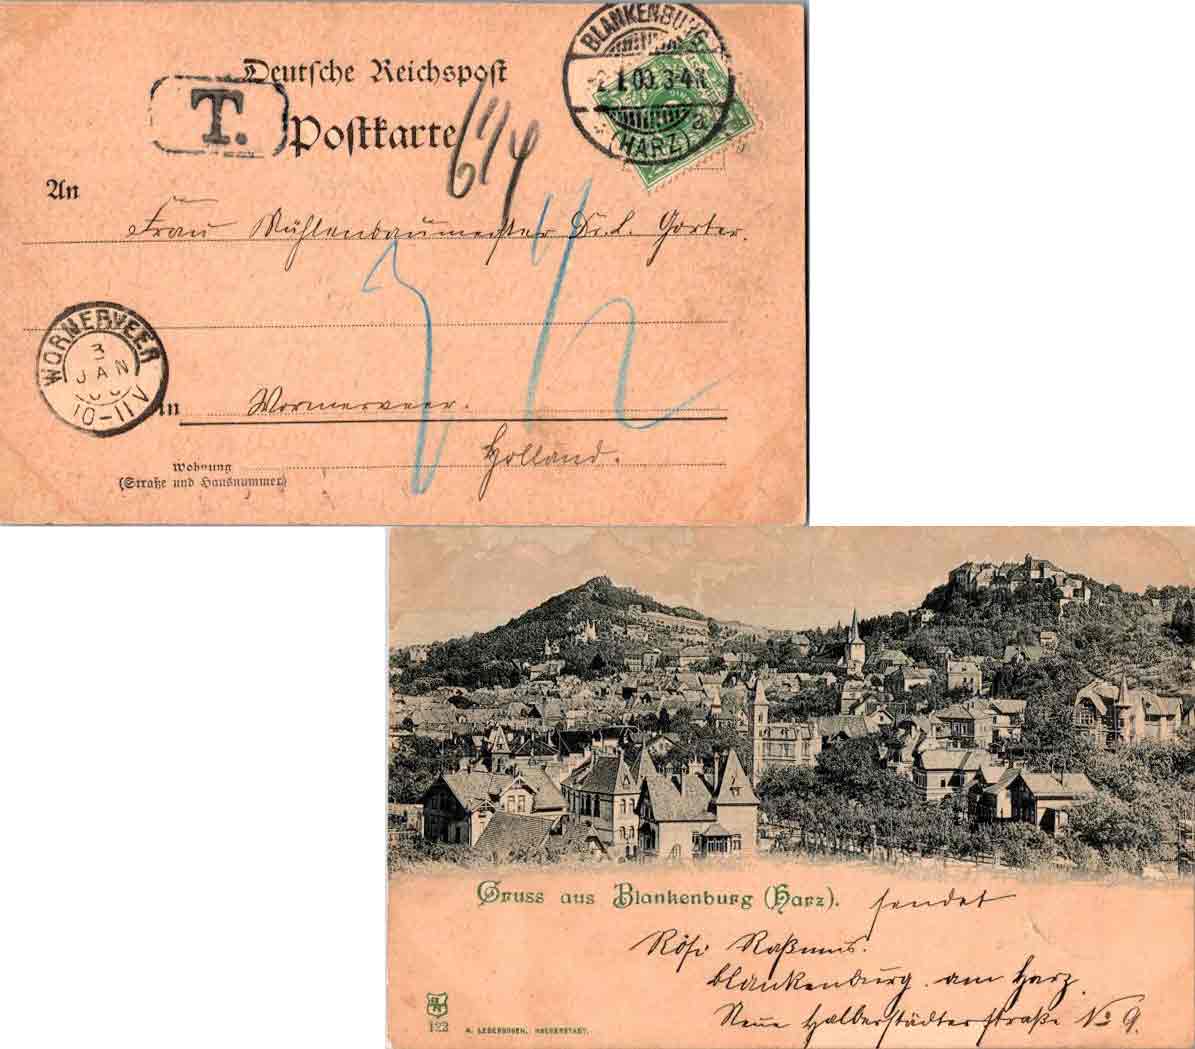 Deutsche Reichspost
Postkarte
T.
6 1/4
BLANKENBURG
2.1.00.3-4N.
a
(HARZ)
An
Frau Mühlenbaumeister Dr. L. Gorter.
WORMERVEER
3
JAN
00
10-11V
in Wormerveer.
Holland.
Wohnung
(Straße und Hausnummer)
Gruss aus Blankenburg (Harz). sendet
Rösi Raßmus.
Blankenburg am Harz.
Neue Halberstädterstraße No 9.
123
A. LEDERBOGEN, HALBERSTADT.